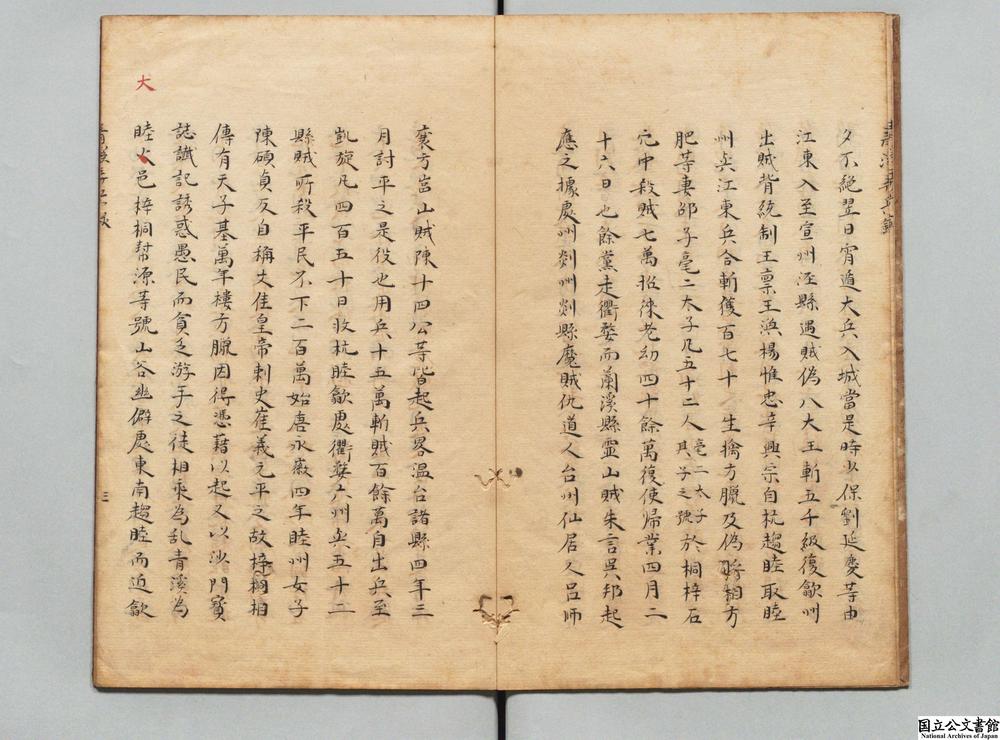 夕不絕翌日宵遁大兵入城當是時少保劉延慶等由
江東入至宣州涇縣遇賊偽八大王斬五千級復歙州
出賊背統制王稟王渙楊惟忠辛興宗自杭趨睦取睦
州與江東兵合斬獲百七十生擒方臘及偽將相方
肥等妻邵子亳二太子凡五十二人亳二太子其子之號於桐梓石
穴中殺賊七萬招徠老幼四十餘萬復使歸業四月二
十六日也餘黨走衢婺而蘭溪縣靈山賊朱言吳邦起
應之據處州剡州剡縣魔賊仇道人台州仙居人呂師
襄方岩山賊陳十四公等皆起兵畧溫台諸縣四年三
月討平之是役也用兵十五萬斬賊百餘萬自出兵至
凱旋凡四百五十日收杭睦歙處衢婺六州與五十二
縣賊所殺平民不下二百萬始唐永徽四年睦州女子
陳碩貞反自稱文佳皇帝刺史崔義元平之故梓桐相
傳有天子基萬年樓方臘因得憑藉以起又以沙門寳
誌讖記誘惑愚民而貪乏游手之徒相乘為乱青溪為
睦大邑梓桐幇源等號山谷幽僻處東南趨睦而近歙
大
三
国立公文書館
National Archives of Japan